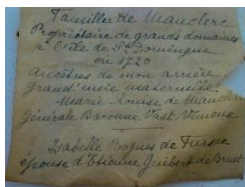 Famille de Mauclerc
Propriétaire de grands domaines
à l'Isle de St Domingue
en 1720
ancêtres de mon arrière
Grand'mère maternelle
Marie Louise de Mauclerc
Générale Baronne Vast. Vimeux
Isabelle Roques de Fursac
épouse d'Etienne Guibert de Bruet